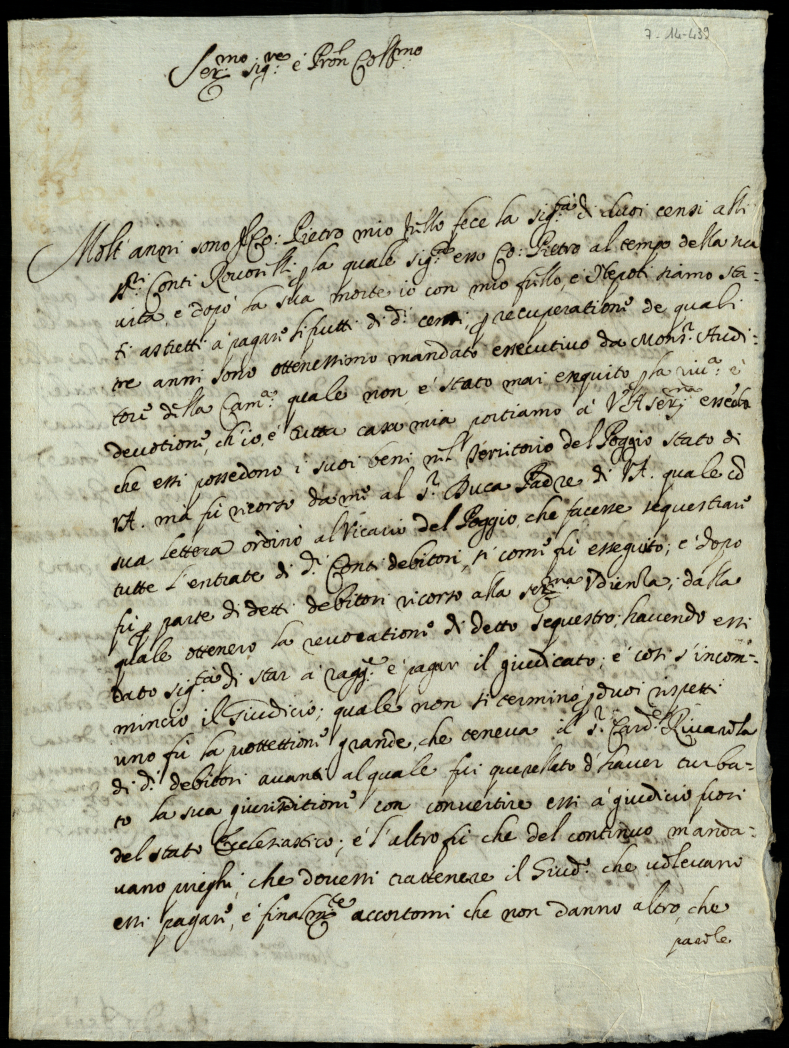 7-14-439
Ser.mo sig.re e Pron Coll.mo
Molt' anni sono il Co: Pietro mio f'ello fece la sig.tà di duoi censi alli
ss.ri Conti Roverelli p la quale sig.tà esso Co: Pietro al tempo della sua
vita, e dopò la sua morte io con mio f'ello, e Nepoti siamo sta=
ti astretti à pagare li frutti di d.i censi, p recuperatione de quali
tre anni sono ottenessimo mandato essecutivo da Mons.r Audi=
tore della Cam.a quale non e' stato mai exequito p la riv.a e
devotione, ch'io, e tutta casa mia portiamo à V.A ser.ma essendo
che essi possedono i suoi beni nel Territorio del Poggio stato di
V.A. ma fù ricorso da me al s.r Duca Padre di V.A. quale cõ
sua lettera ordinò al Vicario del Poggio, che facesse sequestrare
tutte l'entrate di d.i Conti debitori, si come fù esseguito; e dopo
fù p parte di detti debitori ricorso alla ser.ma Udienza; dalla
quale ottenero la revocatione di detto sequestro; havendo essi
dato sig.tà di star à ragg.e e pagar il giudicato; e' cosi s'incom=
minciò il Giudicio; quale non si terminò p duoi rispetti
uno fù la protettione grande, che teneva il s.r Card.le Rivarola
di d.i debitori avanti al quale fui querellato d'haver turba=
to la sua giurisditione con convertire essi à giudicio fuori
del stato Ecclesiastico; e' l'altro fù che del continuo manda=
vano prieghi, che dovessi trattenere il Giud.o che volevano
essi pagare, e' finalm.te accortomi che non danno altro, che
parole